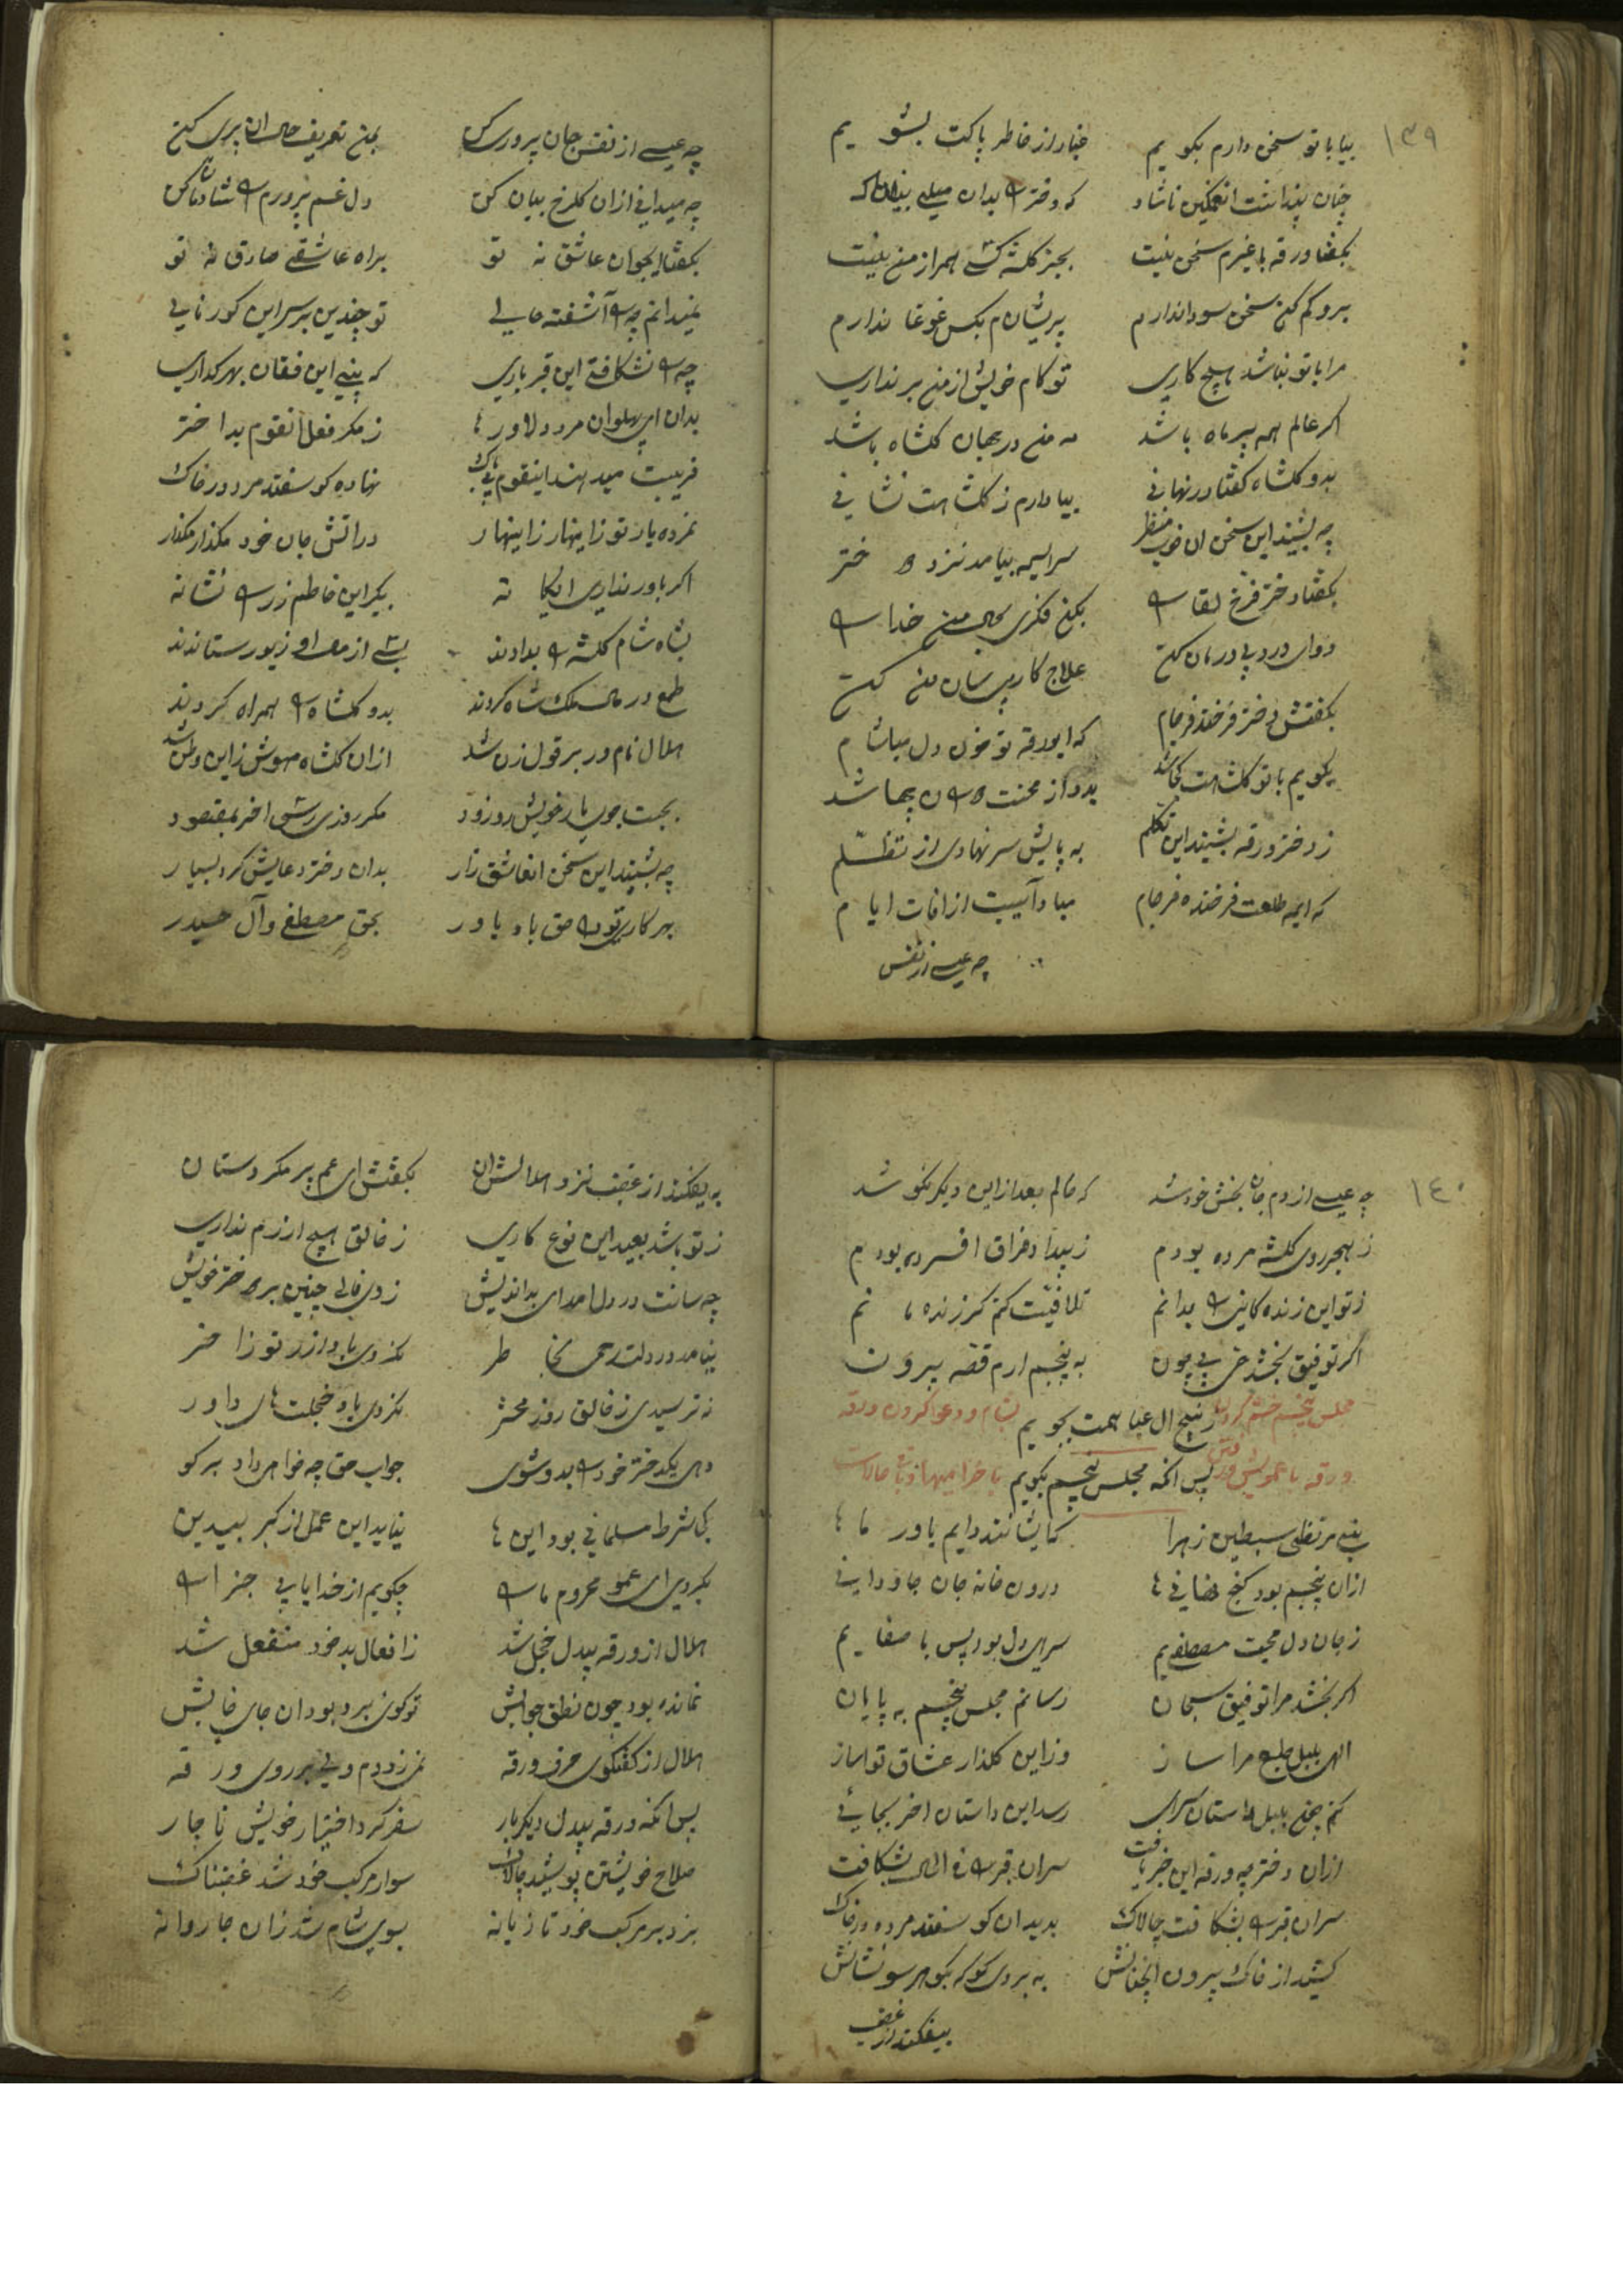 ١٣٩
بیا با تو سخن دارم بکویم غبار از خاطر پاکت بشویم
چنان پنداشت انغمکین ناشاد که دختر را بدان میلی
بکفتا ورقه با غیرم سخن نیست بجز کلشه کسی همراز من نیست
برو کم کن سخن سودا ندارم پریشانم بکس غوغا ندارم
مرا با تو نباشد هیچ کاری تو کام خویش از من برنداری
اکر عالم همه پر ماه باشد مه من در جهان کلشاه باشد
بدو کلشاه کفتا در نهانی بیا دارم ز کلشاهت نشانی
چه بشنید این سخن ان خوب منظر سراسیمه بیامد نزد دختر
بکفتا دختر فرخ لقا را بکن فکری بحال من خدا را
دوای درد بی درمان من کن علاج کار بی سامان من کن
بکفتش دختر فرخنده فرجام که ای ورقه تو خون دل میاشام
بکویم با تو کلشاهت کجا شد بدو از محنت دوران چها شد
ز دختر ورقه بشنید این تکلم به پایش سر نهادی از تظلم
که ایمه طلعت فرخنده فرجام مبادا آسیبت از افات ایام
چه عیسی از نفس
چه عیسی از نفس جان پروری کن بمن تعریف حال ان پری کن
چه میدانی از ان کلرخ بیان کن دل غم پرورم را شادمان کن
بکفتا ایجوان عاشق نه تو براه عاشقی صادق نه تو
نمیدانم چه را آشفته حالی تو چندین بر سر این کور نالی
چه را نشکافتی این قبر باری که بینی این فغان بهر که داری
بدان ای پهلوان مرد دلاور ز مکر فعل انقوم بد اختر
فریبت میدهند اینقوم بی باک نهاده کوسفند مرده در خاک
نمرده یار تو زاینهار زاینهار در اتش جان خود مکذار مکذار
اکر باور نداری ای یکانه بکیر این خاطم زر را نشانه
بشاه شام کلشه را بدادند بسی از مال او زیور ستاندند
طمع در مال ملک شاه کردند بدو کلشاه را همراه کردند
هلال نام در بر قول زن شد ازان کلشاه مهوش زاین وطن شد
بجست جوی یار خویش رو زود مکر روزی رسی اخر بمقصود
چه بشنید این سخن انعاشق زار بدان دختر دعایش کرد بسیار
بهر کاری تو را حق باد یاور بحق مصطفی وآل حیدر
١٤٠
چه عیسی از دم جان بخش خود شد که حالم بعد از این دیکر نکو شد
ز هجر روی کلشه مرده بودم ز بیداد فراق افسرده بودم
ز تو این زنده کانی را بدانم تلافیت کنم کر زنده مانم
اکر توفیق بخشد حی بیچون به پنجم ارم قصه بیرون
ز پنج ال عبا همت بجویم
پس انکه مجلس پنجم بکویم
بنی مرتضی سبطین زهرا کایشانند دایم یاور ما
ازان پنجم بود کنج درون خانه جان جاودانی
ز جان دل محبت مصطفیم سرای دل بود پس با صفایم
اکر بخشد مرا توفیق سبحان رسانم مجلس پنجم به پایان
الهی بلبل طبع مرا ساز وزاین کلذار عشاق نواساز
کنم چون بلبل داستان سرایی رسد این داستان اخر بجائی
ازان دختر چه ورقه این خبر یافت سر ان قبر را فی الحال بشکافت
سر ان قبر را بشکافت چالاک بدید ان کوسفند مرده در خاک
کشید از خاک بیرون به بردی کو که بکو هر سو نشانش
بیفکند از عقب
به یفکند از عقب نزد هلالش ان بکفتش ای عم پر مکر و دستان
ز تو باشد بعید این نوع کاری ز خالق هیچ ازرم نداری
چه سانت در دل امد ای بداندیش زدی فالی چنین بر دختر خویش
نیامد در دلت رحمی بخاطر نکردی یاد از روز اخر
نه ترسیدی ز خالق روز محشر نکردی یاد خجلت های داور
دهی یکدختر خود را بدو شوی جواب حق چه خواهی داد بر کو
کی شرط مسلمانی بود این ها نیاید این عمل از کبر بیدین
بکردی ای عمو محروم ما را چکویم از خدا یابی جزا را
هلال از ورقه بیدل خجل شد ز افعال بد خود منفعل شد
نمانده بود چون نطق جوابش تو کوی برد بود ان جای خابش
هلال از کفتکوی حرف ورقه نمی زد دم ولی بر روی ورقه
پس انکه ورقه بیدل دیکر بار سفر کرد اختیار خویش ناچار
صلاح خویشتن پوشید چالاک سوار مرکب خود شد غضبناک
بزد بر مرکب خود تازیانه بسوی شام شد زان جا روانه